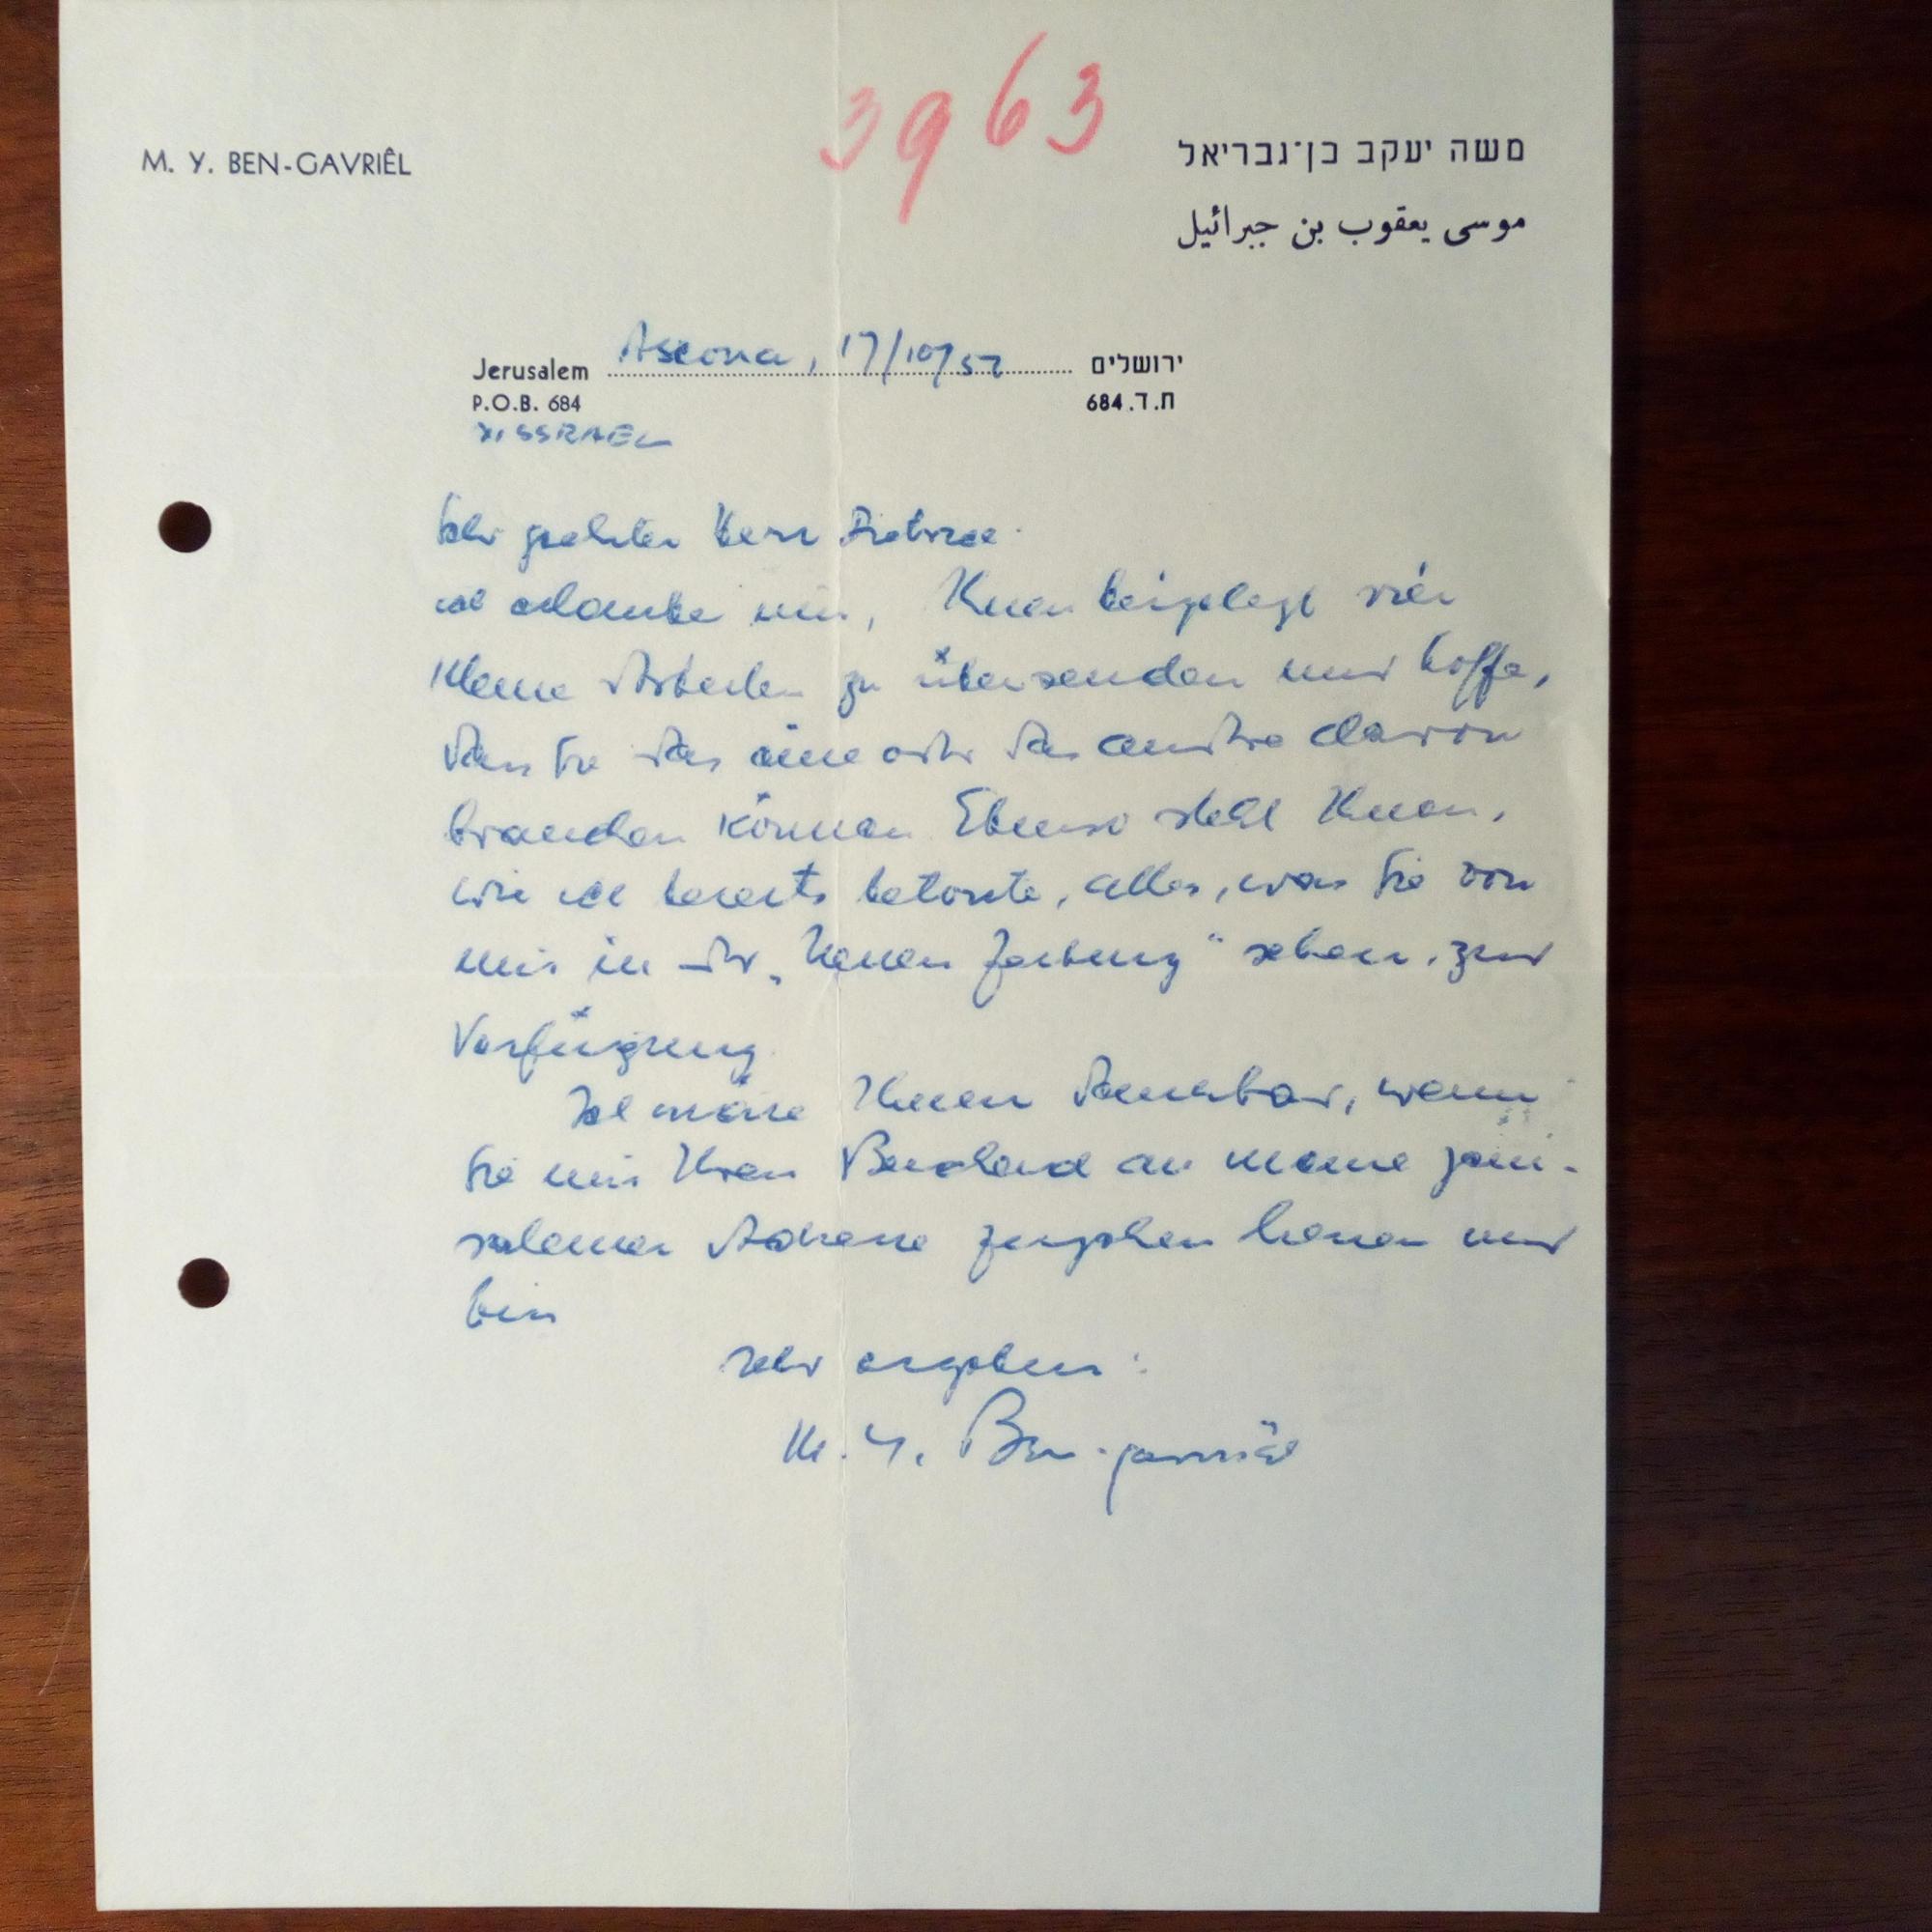 3963
M. Y. BEN-GAVRIÊL
משה יעקב בן־גבריאל
موسى يعقوب بن جبرائيل
Jerusalem Ascona, 17/10/57 ירושלים
P.O.B. 684 ת.ד. 684
YISSRAEL
Sehr geehrter Herr
ich erlaube mir, Ihnen beigelegt vier
kleine Arbeiten zu übersenden und hoffe,
dass Sie das eine oder das andre davon
brauchen können. Ebenso steht Ihnen,
wie ich bereits betonte, alles, was Sie von
mir in der „Neuen Zeitung" sehen, zur
Verfügung.
Ich wäre Ihnen dankbar, wenn
Sie mir Ihren Bescheid an meine jeru-
salemer Adresse zugehen liessen und
bin
sehr ergeben:
M. Y. Ben-gavriêl